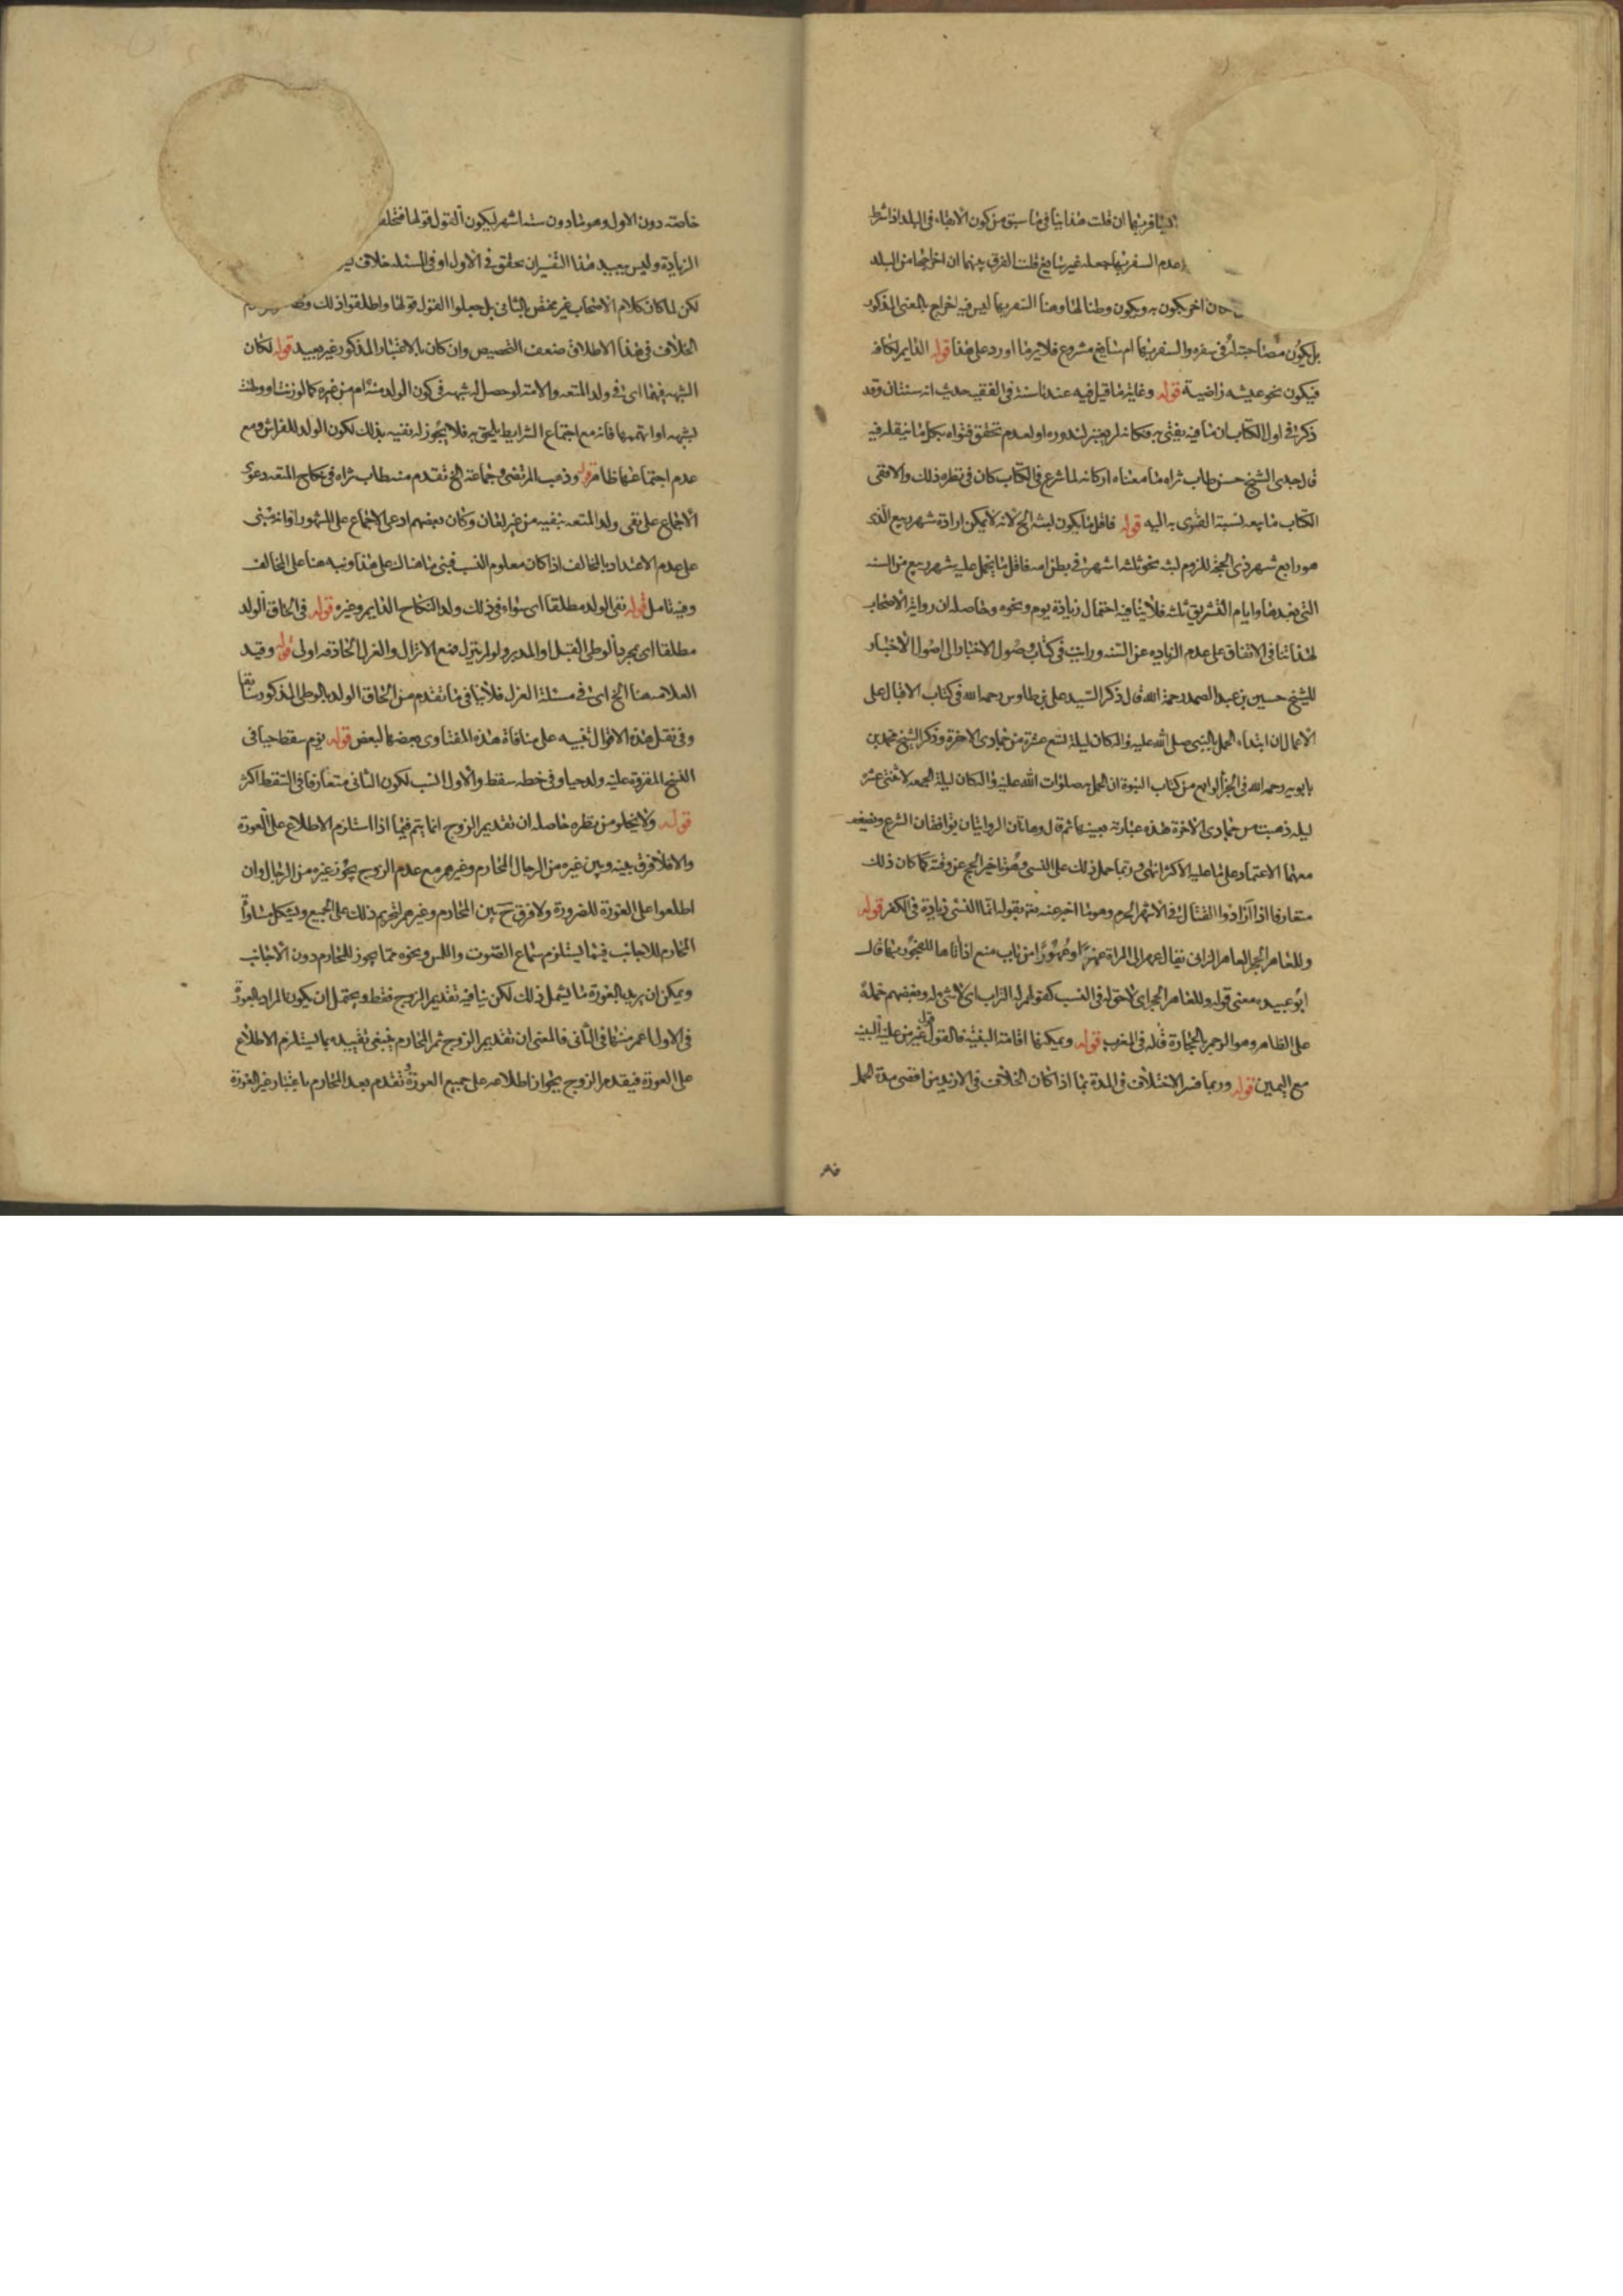 ليسافر بها ان قلت هذا ينافي ما سبق من كون الابقاء في البلد اذا شرط
عدم السفر بها جعله غير سايغ قلت الفرق بينهما ان اخراجها من البلد
اخر يكون به ويكون وطنا لها وهنا السفر بها ليس فيه اخراج بالمعنى المذكور
بل يكون مصاحبته له في سفره والسفر بها امر سايغ مشروع فلا يرد ما اورد على هذا قوله الدايم لكافه
فيكون نحو عيشه راضية قوله وغاية ما قيل فيه عندنا سنة في الفقيه حديث انه سنتان وقد
ذكر في اول الكتاب ان ما فيه يفتي به فكانه لم يعتبر لندوره او لعدم تحقق فتواه بكل ما ينقله فيه
قال جدي الشيخ حسن طاب ثراه ما معناه اركانه لما شرع في الكتاب كان في نظره ذلك والا ففي
الكتاب ما يبعد نسبة الفتوى به اليه قوله فاقل ما يكون لبثه الخ لانه لا يمكن ارادة شهر ربيع الذي
هو رابع شهر ذي الحجة للزوم لبثه نحو ثلثه اشهر في بطن امه فاقل ما يحمل عليه شهر ربيع من السنه
التي بعدها وايام التشريق ثلثه فلا ينافيه احتمال زيادة يوم ونحوه وحاصله ان رواية الاصحاب
لهذا تنافي الاتفاق على عدم الزياده عن السنه ورايت في كتاب وصول الاخيار الى اصول الاخبار
للشيخ حسين بن عبد الصمد رحمة الله قال ذكر السيد علي بن طاوس رحمه الله في كتاب الاقبال على
الاعمال ان ابتداء الحمل بالنبي صلى الله عليه واله كان ليلة تسع عشرة من جمادى الاخرة وذكر الشيخ محمد بن
بابويه رحمه الله في الجزء الرابع من كتاب النبوة ان الحمل به صلوات الله عليه واله كان ليلة الجمعه لاثنتي عشرة
ليله ذهبت من جمادى الاخرة هذه عبارته بعينها ثم قال وهاتان الروايتان يوافقان الشرع ويضعف
معهما الاعتماد على ما عليه الاكثر انتهى وربما حمل ذلك على النسي وهو تاخير الحج عن وقته كما كان ذلك
متعارفا اذا ارادوا القتال في الاشهر الحرم وهو ما اخبر عنه تعالى بقوله انما النسي زيادة في الكفر قوله
وللعاهر الحجر العاهر الزاني يقال عهر الى المراة عهرا وعهورا من باب منع اذا اتاها للفجور بها قال
ابو عبيد معنى قوله وللعاهر الحجر اي لا حق له في النسب كقولهم له التراب اي لا شئ له وبعضهم حمله
على الظاهر وهو الرجم بالحجارة قاله في المغرب قوله ويمكنها اقامة البينة فالقول قول غير من عليه البينه
مع اليمين قوله وربما فسر الاختلاف في المدة بما اذا كان الخلاف في الازيد من اقصى مدة الحمل
خاصه دون الاول وهو ما دون سته اشهر ليكون القول قولها فتحلف
الزيادة وليس ببعيد هذا التفسير ان تحقق في الاول او في المسئله خلاف
لكن لما كان كلام الاصحاب غير مختص بالثاني بل جعلوا القول قولها واطلقوا ذلك
الخلاف في هذا الاطلاق ضعف التخصيص وان كان بالاعتبار المذكور غير بعيد قوله لكان
الشبهه فيهما اي في ولد المتعه والامة لو حصل له شبهه في كون الولد منه ام من غيره كما لو زنت او وطئت
لشبهه او اتهمها فانه مع اجتماع الشرايط يلحق به فلا يجوز له نفيه بذلك لكون الولد للفراش ومع
عدم اجتماعها ظاهر قوله وذهب المرتضى وجماعة الخ تقدم منه طاب ثراه في نكاح المتعه دعوى
الاجماع على نفي ولد المتعه بنفيه من غير لعان وكان بعضهم ادعى الاجماع على المشهور او انه مبني
على عدم الاعتداد بالمخالف اذا كان معلوم النسب فبنى ما هناك على هذا ونبه هنا على المخالف
وفيه تامل قوله نفي الولد مطلقا اي سواء في ذلك ولد النكاح الدايم وغيره قوله في الحاق الولد
مطلقا اي بمجرد الوطي القبل او المدبر ولو لم ينزل فمع الانزال والعزل الحاقه اولى قوله وقيد
العلامه هنا الخ اي في مسئلة العزل فلا ينافي ما تقدم من الحاق الولد بالوطي المذكور سابقا
وفي نقل هذه الاقوال تنبيه على منافاة هذه الفتاوى بعضها لبعض قوله يوم سقط حيا في
النسخ المقروة عليه ولد حيا وفي خطه سقط والاول انسب لكون الثاني متعارفا في السقط اكثر
قوله ولا يخلو من نظر حاصله ان تقديم الزوج انما يتم فيما اذا استلزم الاطلاع على العورة
والا فلا فرق بينه وبين غيره من الرجال المحارم وغيرهم مع عدم الزوج يجوز غيره من الرجال وان
اطلعوا على العورة للضرورة ولا فرق ح بين المحارم وغيرهم لتحريم ذلك على الجميع ويشكل بمساواة
المحارم للاجانب فيما يستلزم سماع الصوت واللمس ونحوه مما يجوز للمحارم دون الاجانب
ويمكن ان يريد بالعورة ما يشمل ذلك لكن ينافيه تقديم الزوج فقط ويحتمل ان يكون المراد بالعورة
في الاول اعم منها في الثاني فالمعنى ان تقديم الزوج ثم المحارم ينبغي تقييده بما يستلزم الاطلاع
على العورة فيقدم الزوج لجواز اطلاعه على جميع العورة وتقدم بعد المحارم باعتبار غير العورة